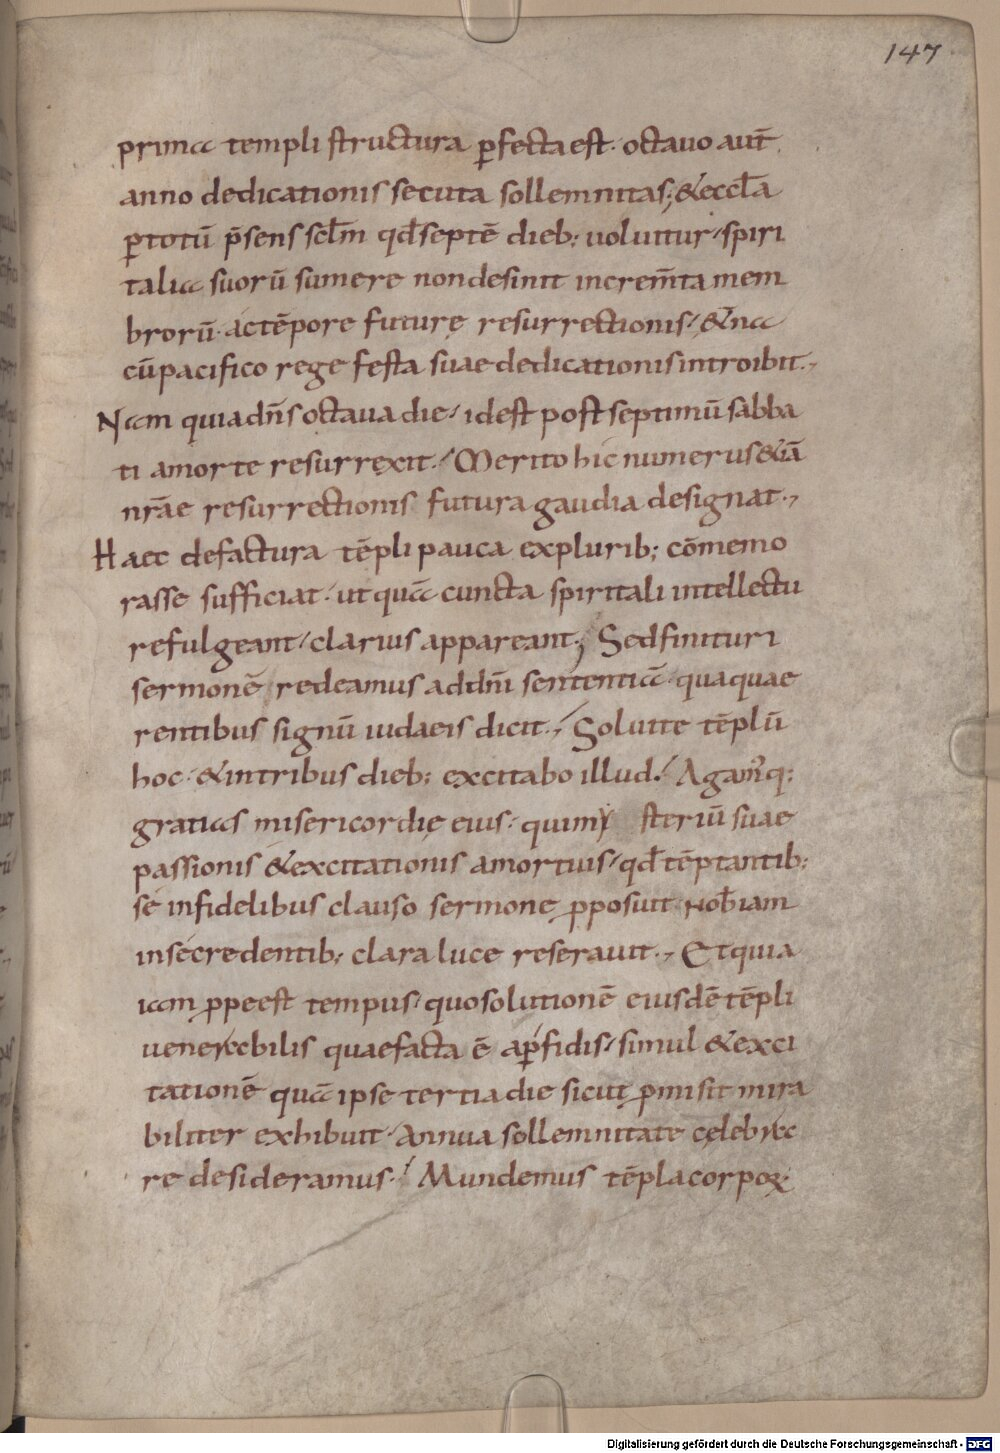 147
prima templi structura ꝑfecta est· octauo aut̄
anno dedicationis secuta sollemnitas; &eccl̄a
ꝑtotū p̄sens scl̄m qđ septē dieb; uoluitur· spiri
talia suorū sumere non desinit increm̄ta mem
brorū· ac tēpore futurę resurrectionis· &na
cū pacifico rege festa suae dedicationis introibit·,
Nam quia dn̄s octaua die· id est post septimū sabba
ti a morte resurrexit· Merito hic numerus &iā
nr̄ae resurrectionis futura gaudia designat·,
Haec de factura tēpli pauca ex plurib; cōmemo
rasse sufficiat· ut quā cuncta spiritali intellectu
refulgeant· clarius appareant; Sed finituri
sermonē redeamus ad dn̄i sententiā· qua quae
rentibus signū iudaeis dicit·, Soluite tēplū
hoc· &in tribus dieb; excitabo illud· Agam᾽ q;
gratias misericordię eius· qui my steriū suae
passionis &excitationis a mortuis· qđ tēptantib;
se infidelibus clauso sermone ꝓposuit· nob̄ iam
in se credentib; clara luce reserauit·, Et quia
iam ꝓpe est tempus· quo solutionē eiusdē tēpli
uenerabilis quae facta ē a ꝑfidis· simul &exci
tationē quā ipse tertia die sicut ꝓmisit mira
biliter exhibuit· Annua sollemnitate celebra
re desideramus· Mundemus tēpla corpoꝝ
Digitalisierung gefördert durch die Deutsche Forschungsgemeinschaft - DFG